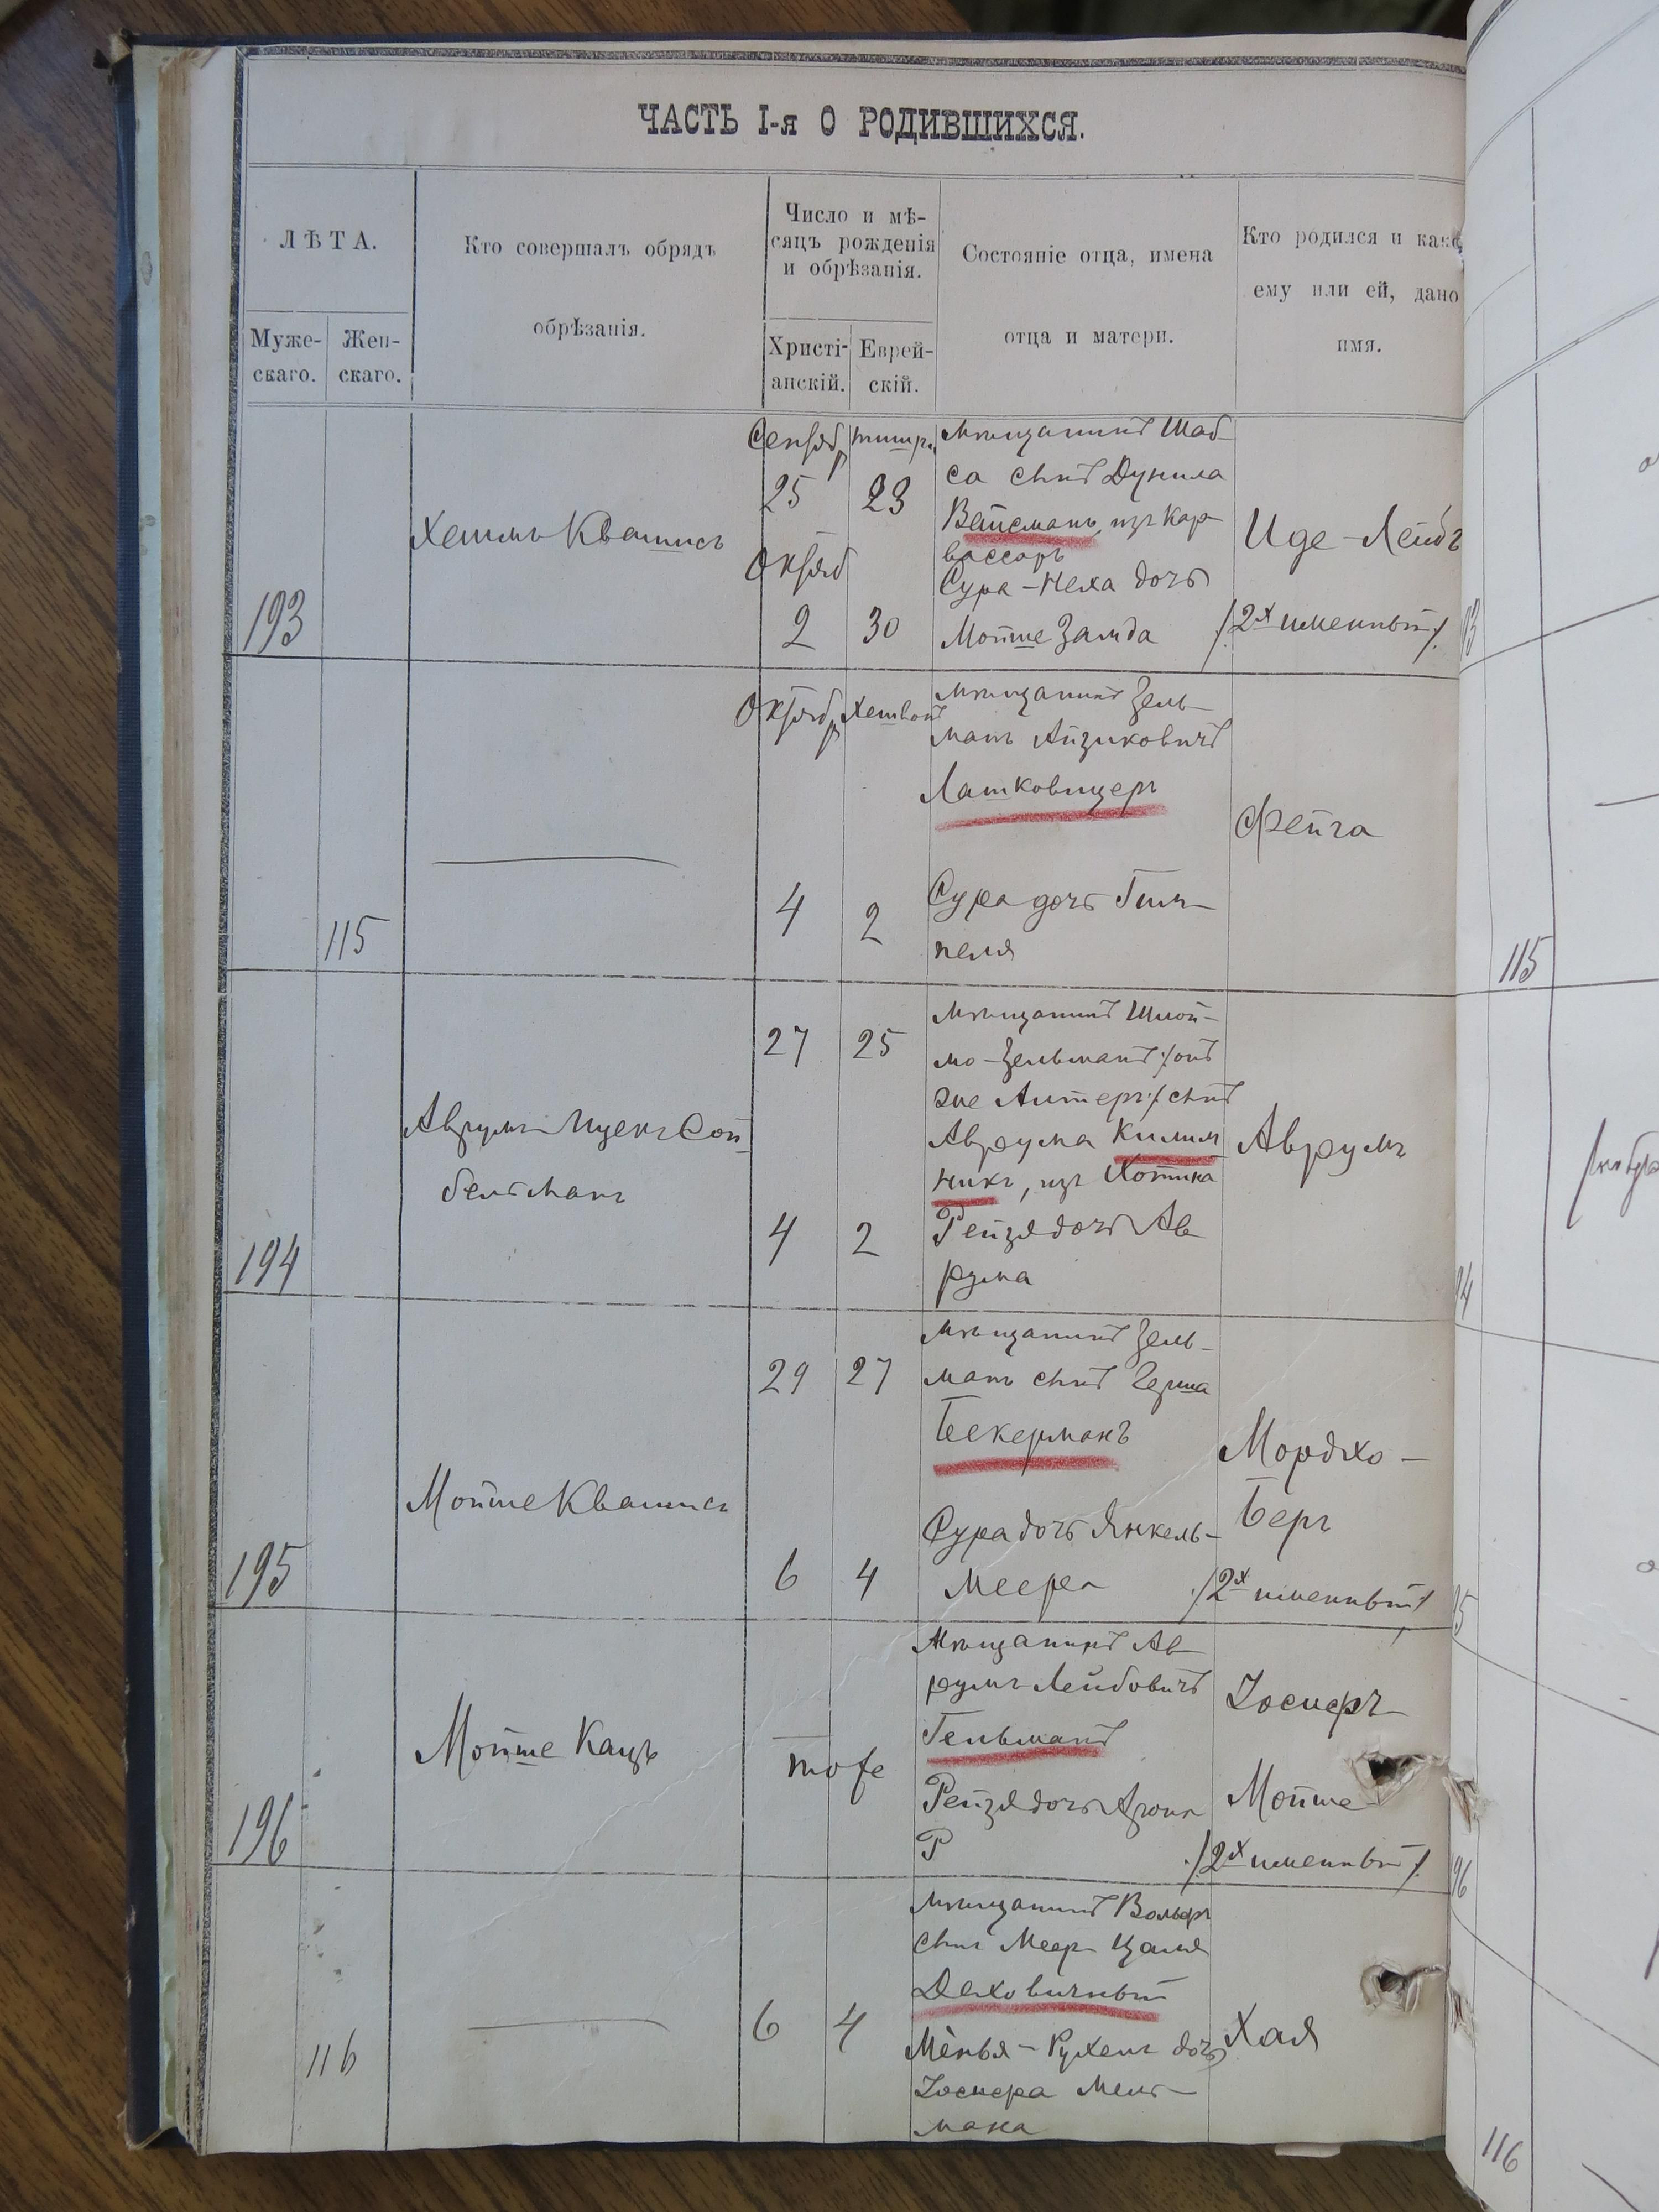 ЧАСТЬ I-я О РОДИВШИХСЯ.
ЛѢТА.
Муже-
скаго.
Жен-
скаго.
Кто совершалъ обрядъ
обрѣзанія.
Число и мѣ-
сяцъ рожденія
и обрѣзанія.
Христі-
анскій.
Еврей-
скій.
Состояніе отца, имена
отца и матери.
Кто родился и како
ему или ей, дано
имя.
193
Сентяб
25
Октяб
2
тишри
23
30
Мѣщанинъ Шаб-
са сынъ Дунила
Вайсманъ, изъ Кар-
вассаръ
Сура-Неха дочь
Мойше
Иде-Лейбъ
/2х именный/
115
Октяб
4
2
Мѣщанинъ Зель-
манъ Айзиковичъ
Лашковицеръ
Сура дочь Гим-
пеля
Фейга
194
Аврумъ Ицекъ Сой
бельманъ
27
4
25
2
Мѣщанинъ Шлой-
мо-Зельманъ /онъ
же Алтеръ/ сынъ
Аврума Килим
никъ, изъ Хотина
Рейзя дочь Ав
рума
Аврумъ
195
Мойше
29
6
27
4
Мѣщанинъ Зель-
манъ сынъ Герша
Бекерманъ
Сура дочь Янкель-
Меера
Мордхо-
Беръ
/2х именный/
196
Мойше Кацъ
тоже
Мѣщанинъ Ав
румъ Лейбовичъ
Гельманъ
Рейзя дочь
Іосифъ
Мойше
/2х именный/
116
6
4
Мѣщанинъ Вольфъ
сынъ Меер
Деховичный
Менья-Рухель дочь
Іосифа Мель-
мана
Хая
115
116